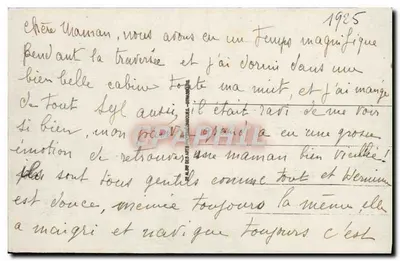 1925
chère Maman, nous avons eu un temps magnifique
pendant la traversée et j'ai dormi dans une
bien belle cabine toute ma nuit, et j'ai mangé
de tout il était ravi de me voir
si bien, mon a eu une grosse
émotion de retrouver une maman bien vieillie!
ils sont tous gentils comme tout et
est douce, menue toujours la même, elle
a maigri et navigue toujours c'est